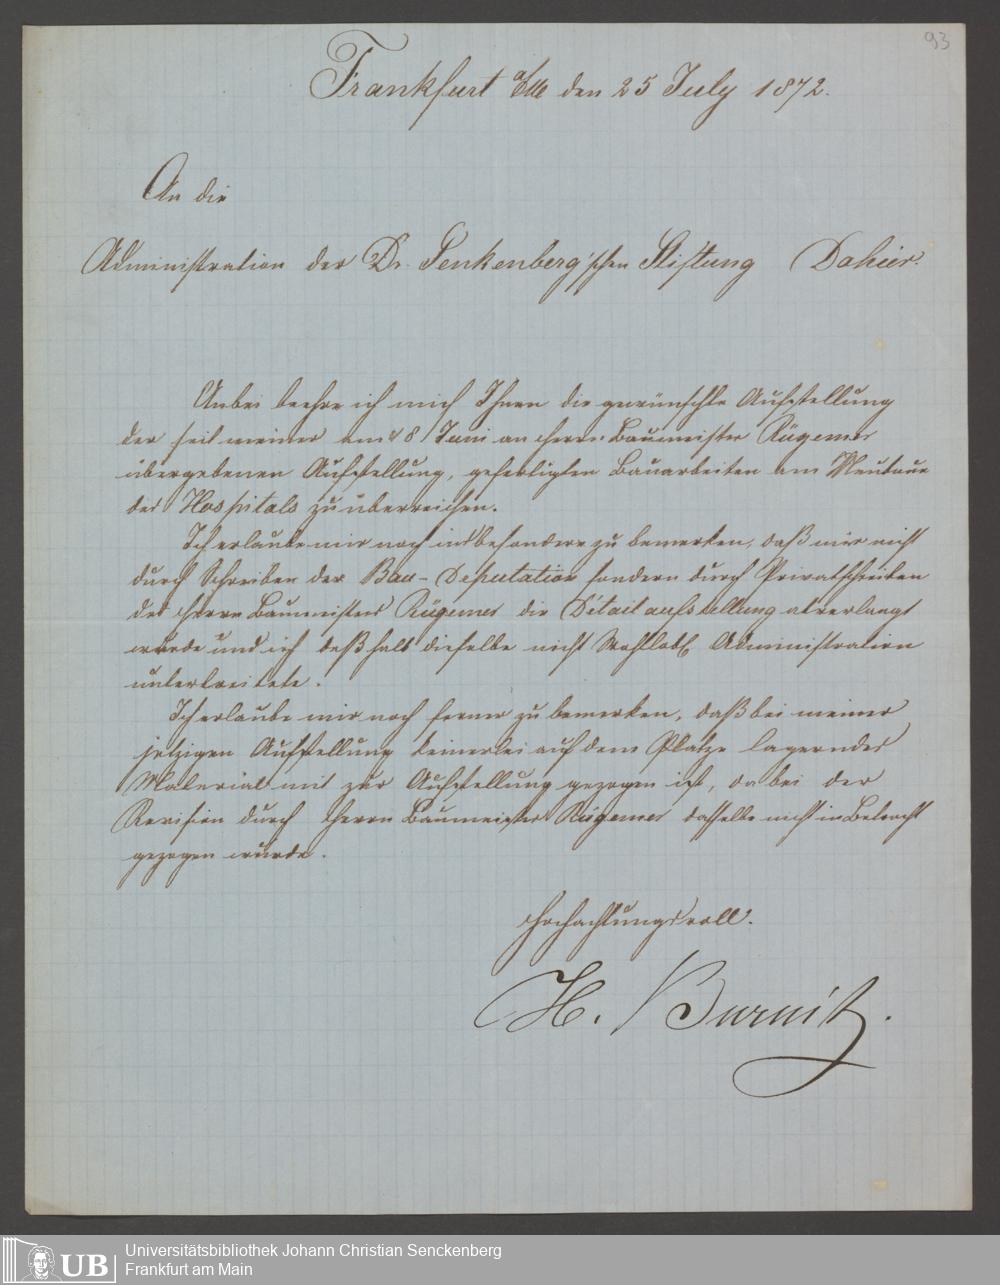 93
Frankfurt a/M den 25 July 1872.
An die
Administration der Dr. Senkenberg'schen Stiftung Dahier.
Anbei beehre ich mich Ihnen die gewünschte Aufstellung
der seit meiner am 8 Juni an Herrn Baumeister Rügemer
übergebenen Aufstellung, gefertigten Bauarbeiten am Neubaue
des Hospitals zu überreichen.
Ich erlaube mir noch insbesondere zu bemerken, daß mir nicht
durch Schreiben der Bau-Deputation sondern durch Privatschreiben
des Herrn Baumeisters Rügemer die Détailaufstellung abverlangt
wurde und ich deßhalb dieselbe nicht Wohllobl. Administration
unterbreitete.
Ich erlaube mir noch ferner zu bemerken, daß bei meiner
jetzigen Aufstellung keinerlei auf dem Platze lagerndes
Material mit zur Aufstellung gezogen ist, da bei der
Revision durch Herrn Baumeister Rügemer dasselbe nicht in Betracht
gezogen wurde.
Hochachtungsvoll.
H. Burnitz.
UB
Universitätsbibliothek Johann Christian Senckenberg
Frankfurt am Main